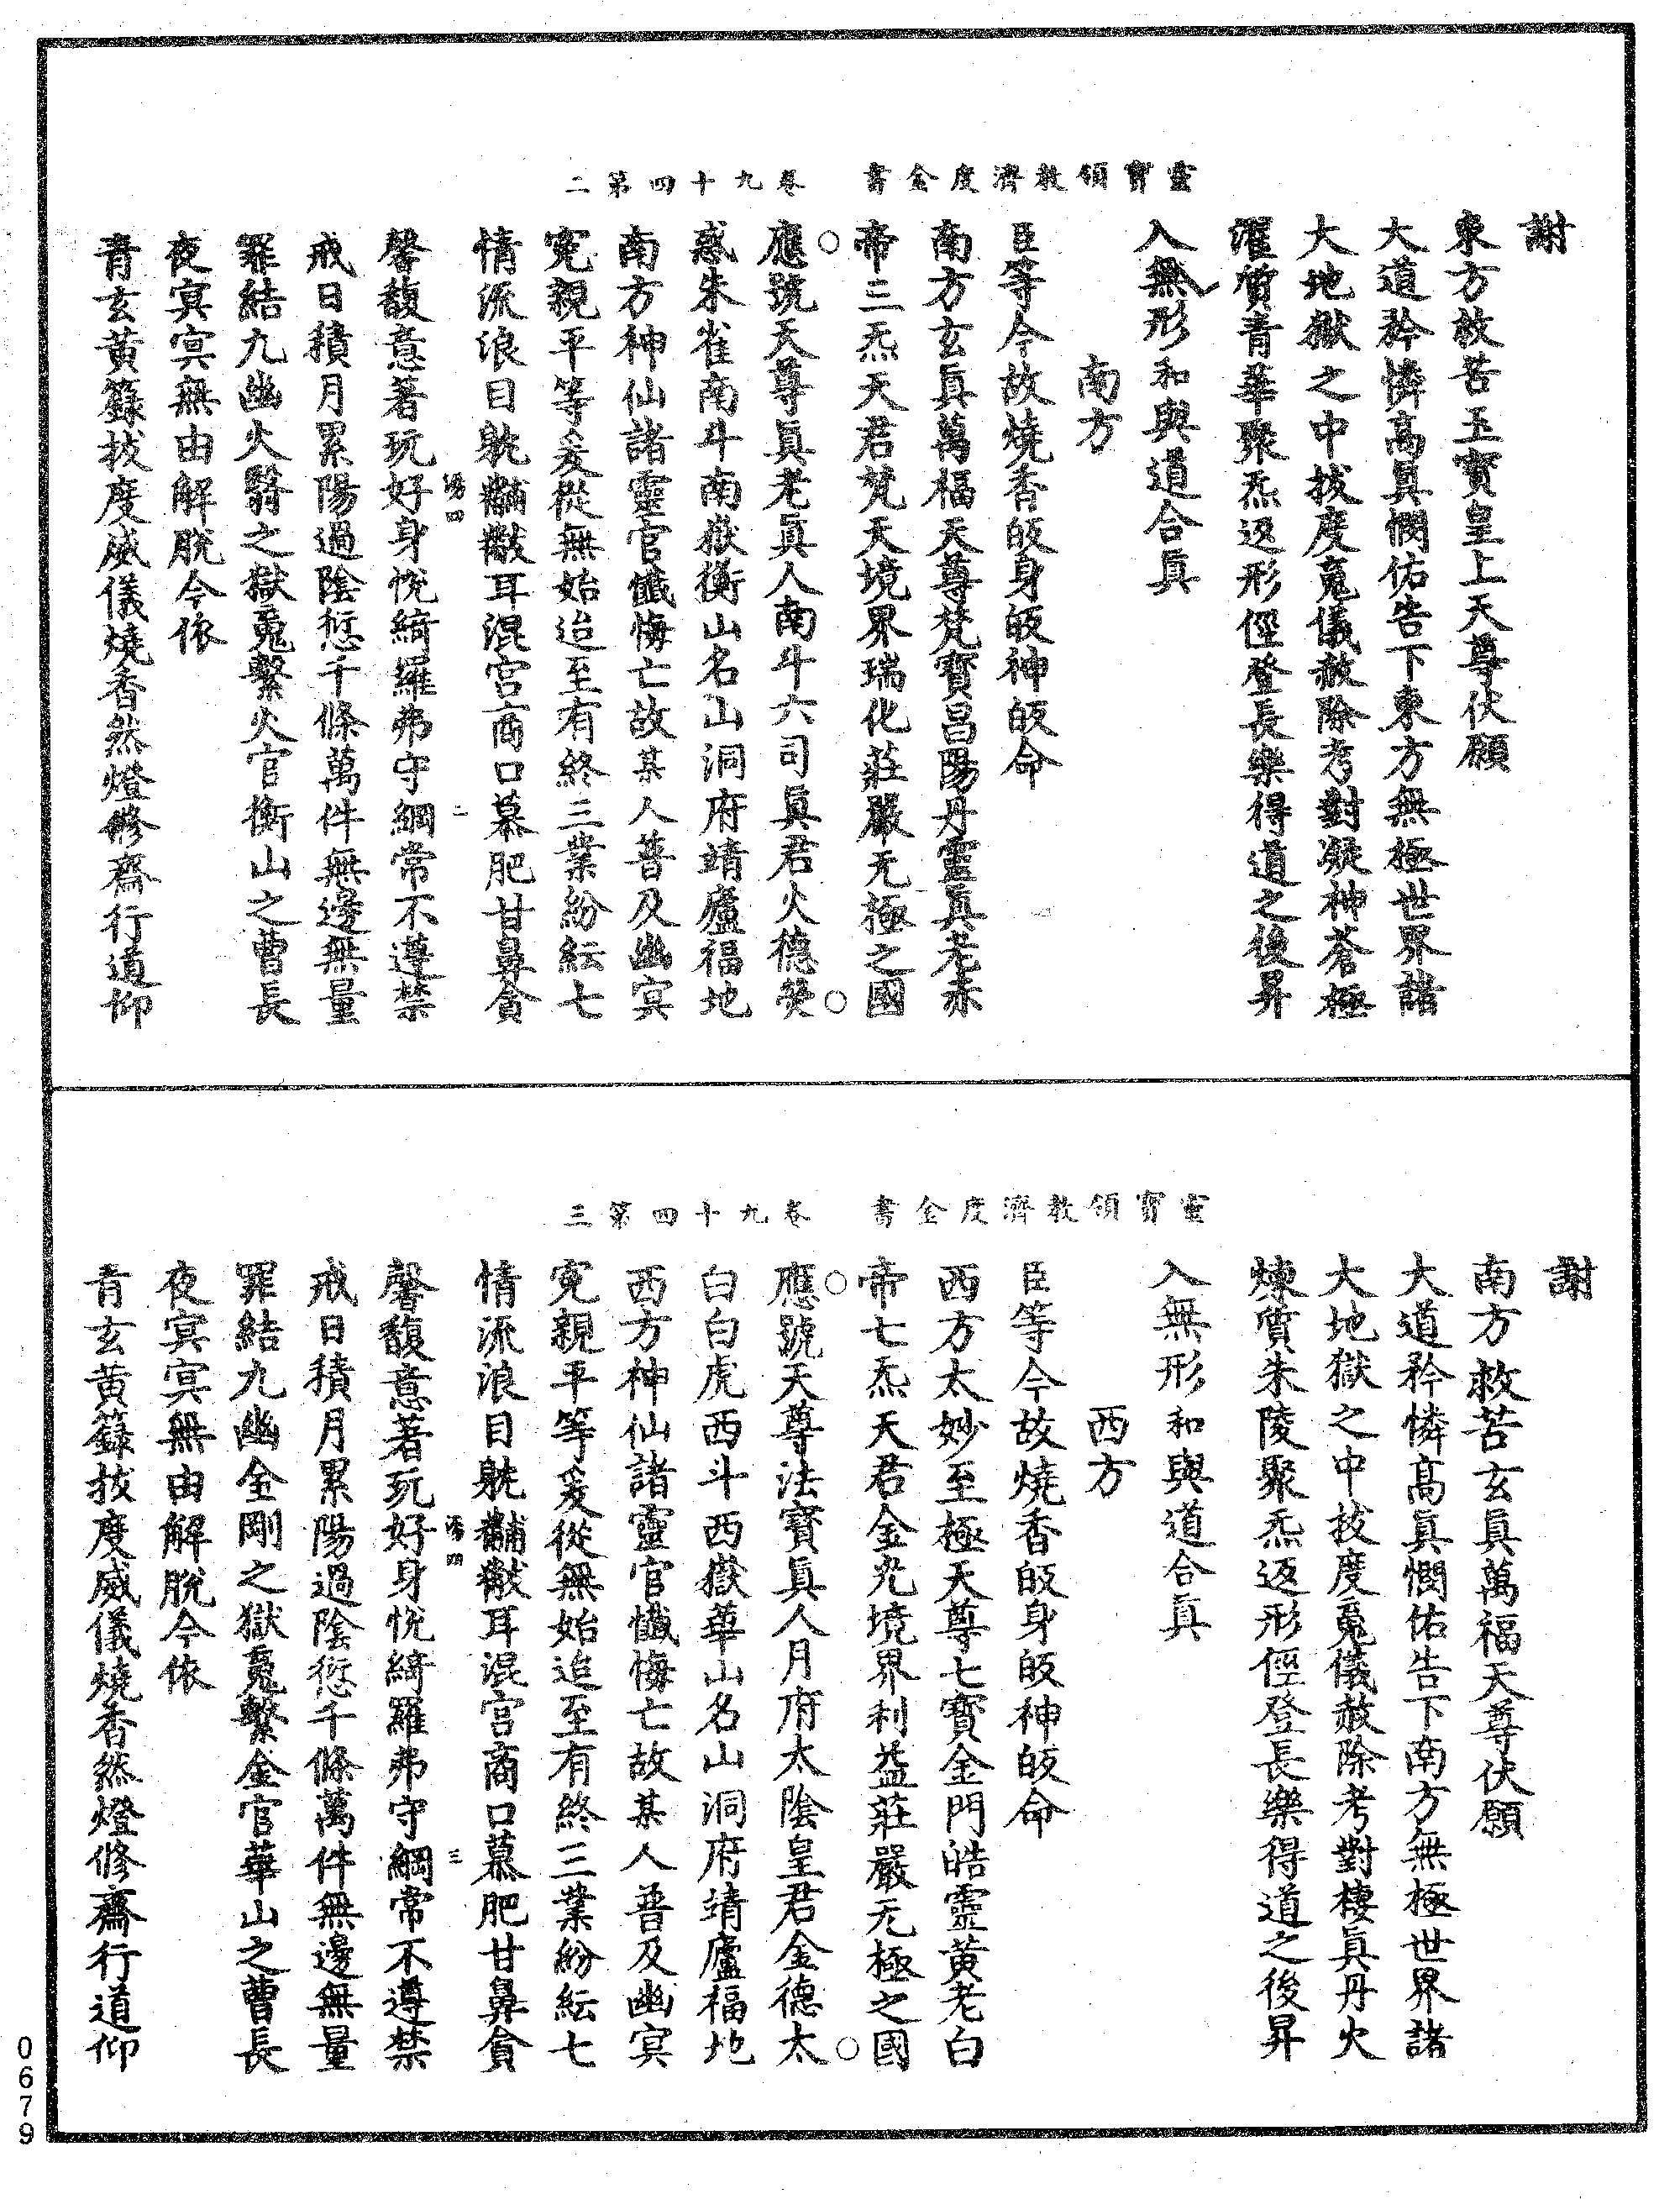 靈寶領教濟度金書　卷九十四第二
謝
東方救苦玉寶皇上天尊伏願
大道矜憐高眞憫佑告下東方無極世界諸
大地獄之中拔度䰟儀赦除考對凝神蒼極
濯質青華聚炁返形徑登長樂得道之後昇
入無形和與道合眞
南方
臣等今故燒香皈身皈神皈命
南方玄眞萬福天尊梵寶昌陽丹靈眞老赤
帝三炁天君梵天境界瑞化莊嚴无極之國
應號天尊眞老眞人南斗六司眞君火德熒
惑朱雀南斗南嶽衡山名山洞府靖廬福地
南方神仙諸靈官懺悔亡故某人普及幽冥
寃親平等爰從無始迨至有終三業紛紜七
情流浪目躭黼黻耳混宮商口慕肥甘鼻貪
馨馥意著玩好身悅綺羅弗守綱常不遵禁
二
戒日積月累陽過陰愆千條萬件無邊無量
罪結九幽火翳之獄䰟繫火官衡山之曹長
夜冥冥無由解脫今依
青玄黃籙拔度威儀燒香然燈修齋行道仰
靈寶領教濟度金書　卷九十四第三
謝
南方救苦玄眞萬福天尊伏願
大道矜憐高眞憫佑告下南方無極世界諸
大地獄之中拔度䰟儀赦除考對棲眞丹火
煉質朱陵聚炁返形徑登長樂得道之後昇
入無形和與道合眞
西方
臣等今故燒香皈身皈神皈命
西方太妙至極天尊七寶金門皓靈黃老白
帝七炁天君金光境界利益莊嚴无極之國
應號天尊法寶眞人月府太陰皇君金德太
白白虎西斗西嶽華山名山洞府靖廬福地
西方神仙諸靈官懺悔亡故某人普及幽冥
寃親平等爰從無始迨至有終三業紛紜七
情流浪目躭黼黻耳混宮商口慕肥甘鼻貪
馨馥意著玩好身悅綺羅弗守綱常不遵禁
三
戒日積月累陽過陰愆千條萬件無邊無量
罪結九幽金剛之獄䰟繫金官華山之曹長
夜冥冥無由解脫今依
青玄黃籙拔度威儀燒香然燈修齋行道仰
0679